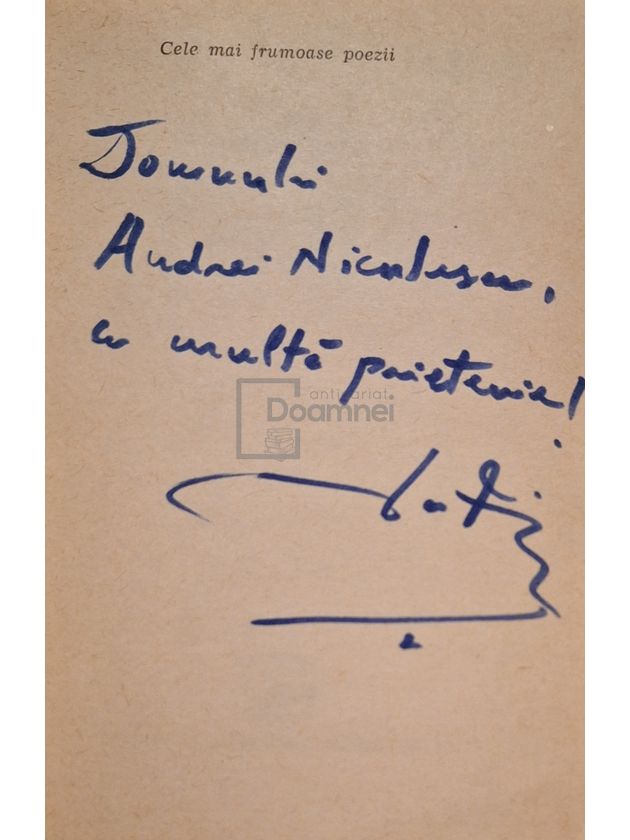 Cele mai frumoase poezii
Domnului
Andrei Niculescu,
cu multă prietenie!
anticariat
Doamnei